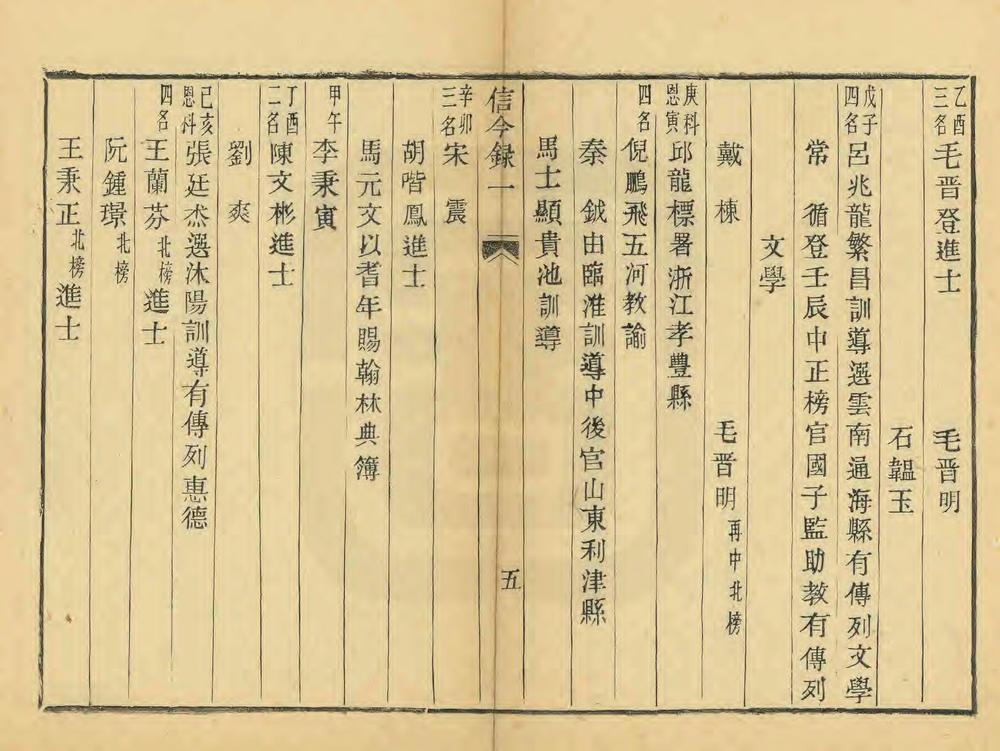 乙酉三名毛晋登進士　毛晋明
石韞玉
戊子四名呂兆龍繁昌訓導選雲南通海縣有傳列文學
常　循登壬辰中正榜官國子監助教有傳列
文學
戴　棟　毛晋明再中北榜
庚寅恩科邱龍標署浙江孝豐縣
四名倪鵬飛五河教諭
秦　鉞由臨淮訓導中後官山東利津縣
馬士顯貴池訓導
信今録一　五
辛卯三名宋　震
胡階鳳進士
馬元文以耆年賜翰林典簿
甲午李秉寅
丁酉二名陳文彬進士
劉　爽
己亥恩科張廷杰選沐陽訓導有傳列惠德
四名王蘭芬北榜進士
阮鍾璟北榜
王秉正北榜進士